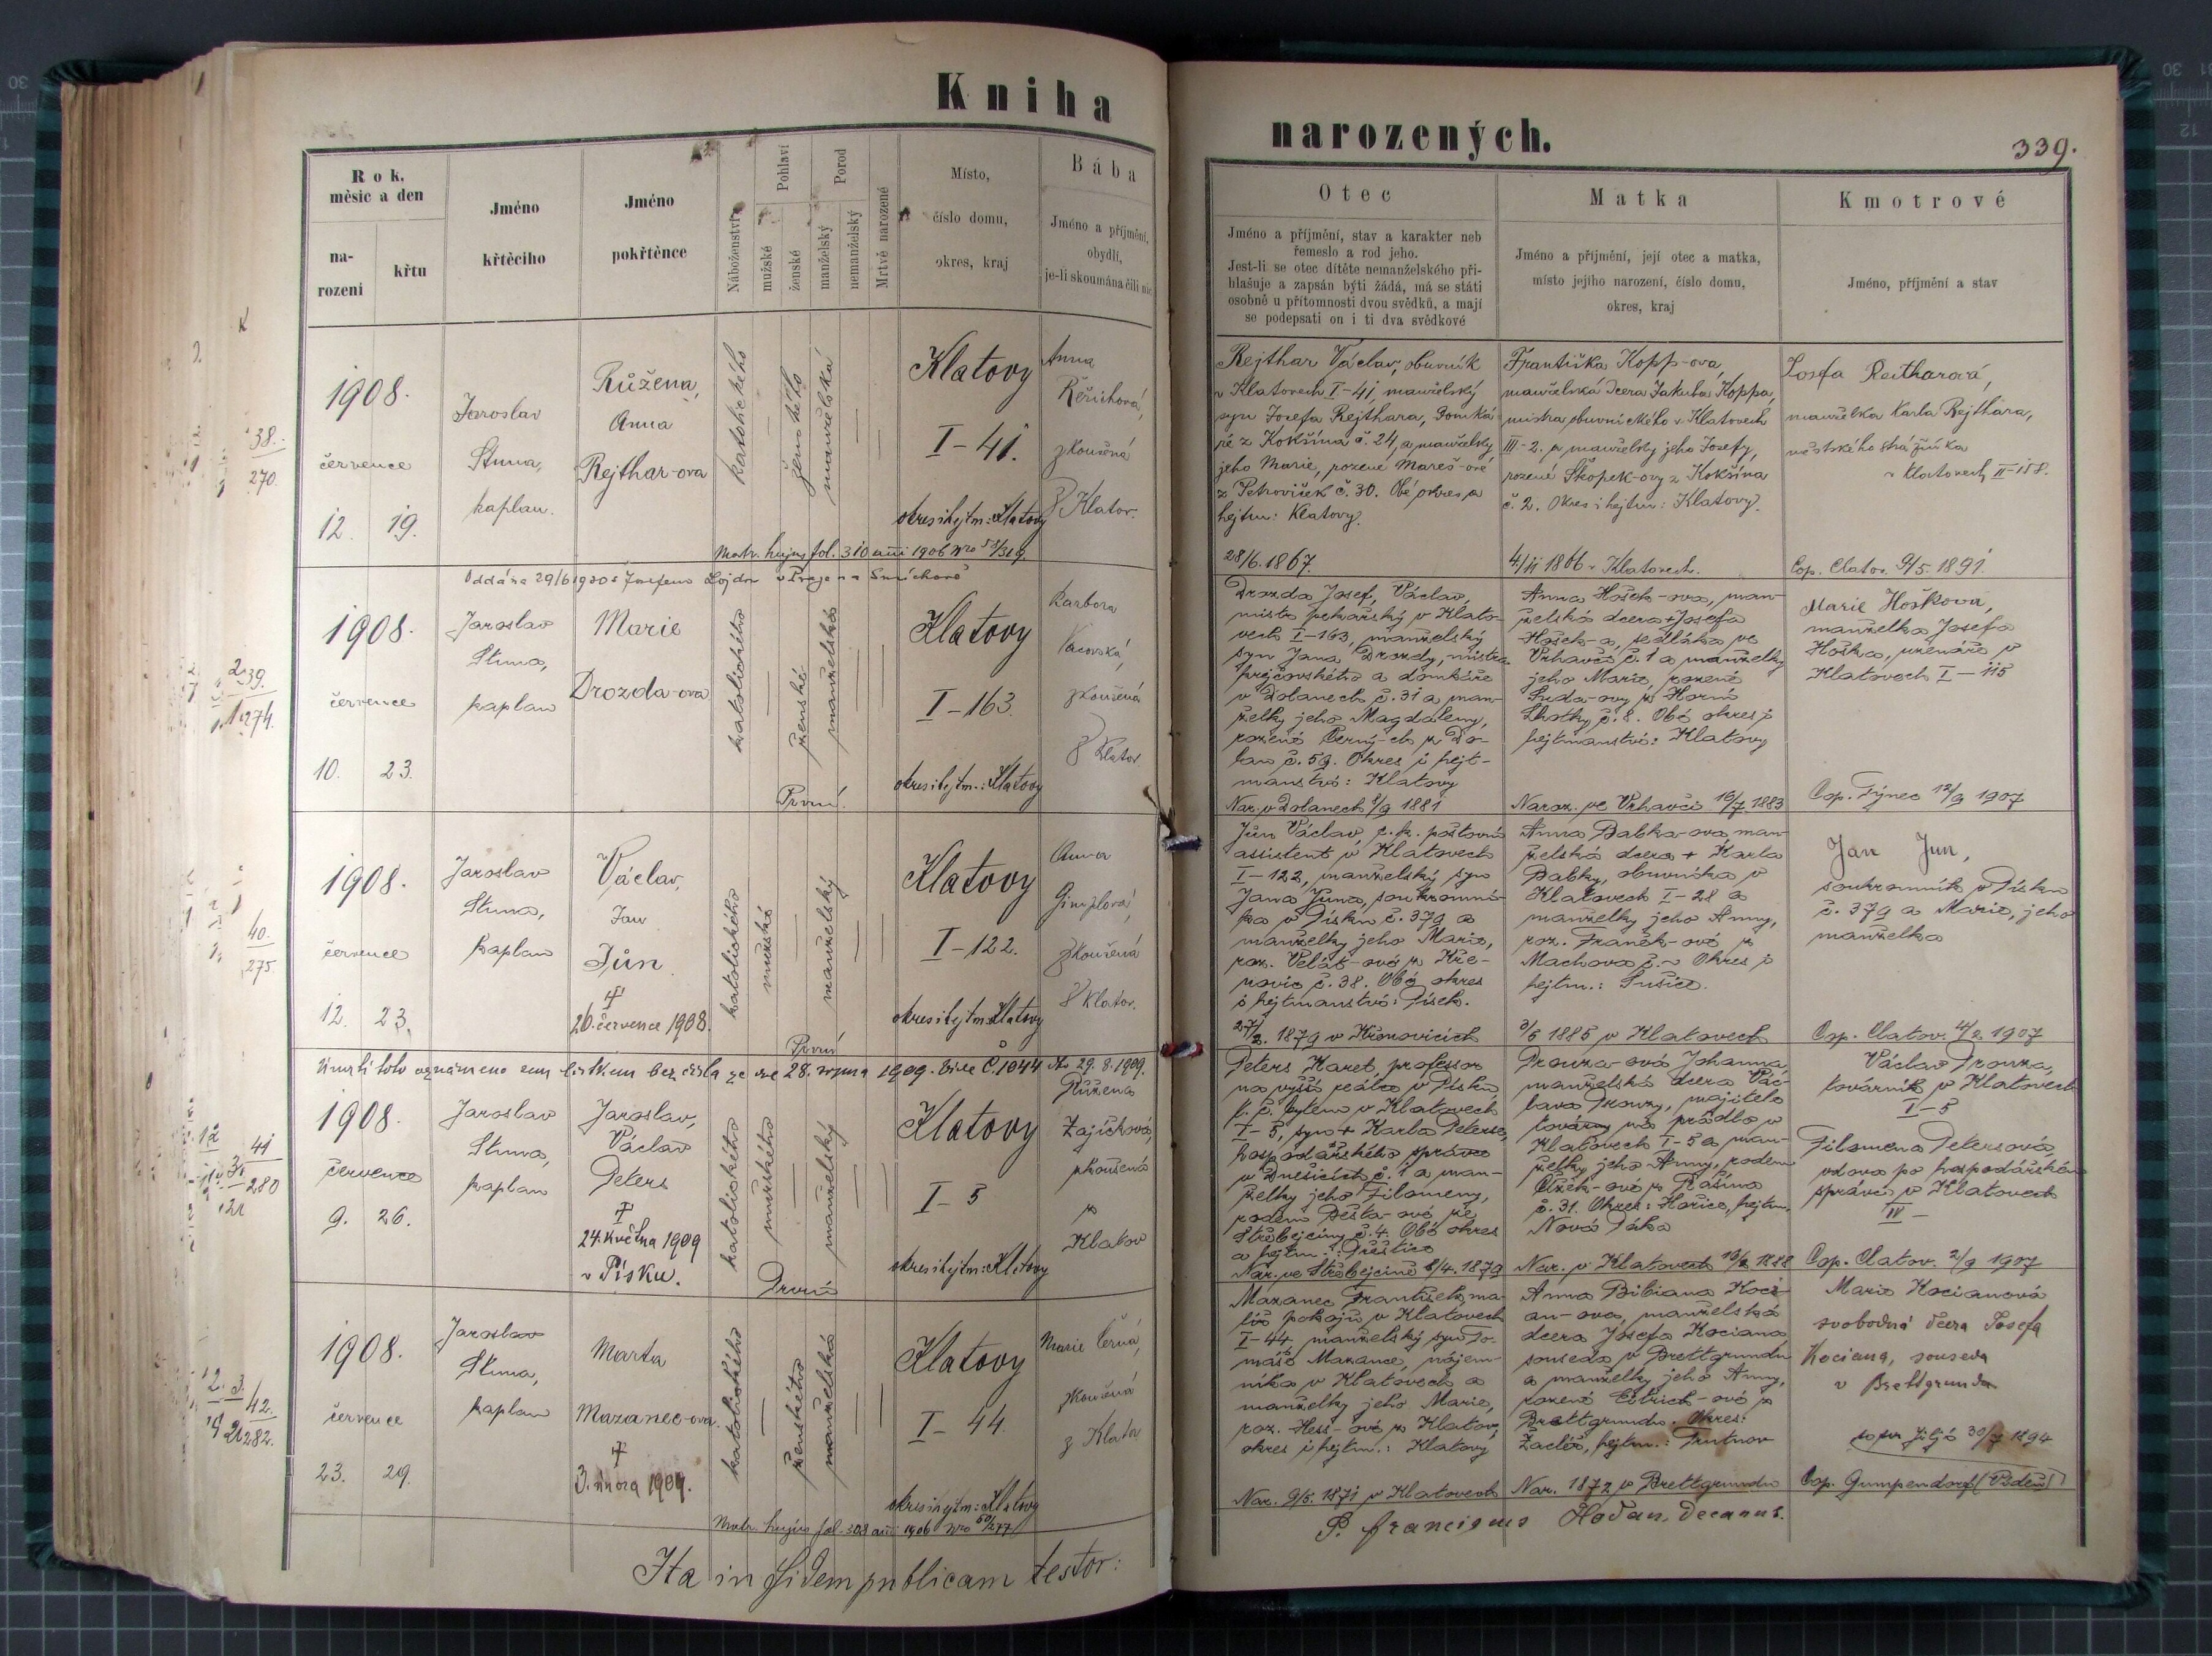 Kniha
narozených.
339.
Rok,
měsíc a den
na-
rozeni
křtu
Jméno
křtěcího
Jméno
pokřtěnce
Náboženství
Pohlaví
mužské
ženské
Porod
manželský
nemanželský
Mrtvě narozené
Místo,
číslo domu,
okres, kraj
Bába
Jméno a příjmění,
obydlí,
je-li skoumána čili nic
Otec
Jméno a příjmění, stav a karakter neb
řemeslo a rod jeho.
Jest-li se otec dítěte nemanželského při-
hlašuje a zapsán býti žádá, má se státi
osobně u přítomnosti dvou svědků, a mají
se podepsati on i ti dva svědkové
Matka
Jméno a příjmění, její otec a matka,
místo jejího narození, číslo domu,
okres, kraj
Kmotrové
Jméno, příjmění a stav
38.
270.
1908.
července
12. 19.
Jaroslav
Stuna,
kaplan.
Růžena,
Anna
Rejthar-ova
katolického
ženského
manželská
Klatovy
I-41.
okres i hejtm: Klatovy
Anna
Řeřichová,
zkoušená
z Klatov.
Matr. hujus fol. 310 anni 1906 Nro 53/319.
Rejthar Václav, obuvník
v Klatovech I-41, manželský
syn Josefa Rejthara, domká-
ře z Kokšína č. 24, a manželky
jeho Marie, rozené Mareš-ové
z Petroviček č. 30. Obé okres a
hejtm: Klatovy.
28/6. 1867.
Františka Kopp-ova,
manželská dcera Jakuba Koppa,
mistra obuvnického v Klatovech
III-2. a manželky jeho Josefy,
rozené Škopek-ovy z Kokšína
č. 2. Okres i hejtm: Klatovy.
4/11 1866 v Klatovech.
Josefa Reitharová,
manželka Karla Rejthara,
městského strážníka
v Klatovech II-118.
Cop. Clatov. 9/5. 1891.
Oddána 29/6 1930 s Josefem Lojdou v Praze na Smíchově
239.
274.
1908.
července
10. 23.
Jaroslav
Stuna,
kaplan
Marie
Drozda-ova
katolického
ženské
manželská
Klatovy
I-163.
okres i hejtm.: Klatovy
Barbora
Vacovská,
zkoušená
z Klatov
První.
Drozda Josef, Václav,
mistr pekařský v Klato-
vech I-163, manželský
syn Jana Drozdy, mistra
krejčovského a domkáře
v Dolanech č. 31 a man-
želky jeho Magdaleny,
rozené Černý-ch z Do-
lan č. 59. Okres i hejt-
manství: Klatovy
Nar. v Dolanech 8/9 1881
Anna Hošek-ova, man-
želská dcera + Josefa
Hošek-a, sedláka ve
Vrhavči č. 1 a manželky
jeho Marie, rozené
Suda-ovy z Horní
Lhotky č. 8. Obé okres i
hejtmanství: Klatovy
Naroz. ve Vrhavči 16/7. 1883
Marie Hošková,
manželka Josefa
Hoška, uzenáře v
Klatovech I-115
Cop. Týnec 12/9 1907
40.
275
1908.
července
12. 23.
Jaroslav
Stuna,
kaplan
Václav,
Jan
Jůn
†
26. července 1908.
katolického
mužské
manželský
Klatovy
I-122.
okres i hejtm: Klatovy
Anna
Gimplová,
zkoušená
z Klatov.
První
Jůn Václav c. k. poštovní
assistent v Klatovech
I-122, manželský syn
Jana Jůna, soukromní-
ka v Písku č. 379 a
manželky jeho Marie,
roz. Velát-ové z Kře-
novic č. 38. Obé okres
i hejtmanství: Písek.
27/2. 1879 v Křenovicích
Anna Babka-ova man-
želská dcera + Karla
Babky, obuvníka v
Klatovech I-28 a
manželky jeho Anny,
roz. Franěk-ové z
Machova č. ~ Okres i
hejtm.: Sušice.
3/5 1885 v Klatovech
Jan Jun,
soukromník v Písku
č. 379 a Marie, jeho
manželka
Cop. Clatov. 4/2 1907
Úmrtí toto oznámeno sem lístkem bez čísla ze dne 28. srpna 1909. Č. 1044 29. 8. 1909.
41
280
1908.
července
9. 26.
Jaroslav
Stuna,
kaplan
Jaroslav,
Václav
Peters
†
24. května 1909
v Písku.
katolického
mužského
manželský
Klatovy
I-5
okres i hejtm: Klatovy
Růžena
Zajíčková,
zkoušená
z
Klatov
První
Peters Karel, professor
na vyšší reálce v Písku,
t. č. bytem v Klatovech
I-5, syn + Karla Peterse,
hospodářského správce
v Dnešicích č. 1 a man-
želky jeho Filomeny,
rodem Pešta-ové ze
Střebejčiny č. 4. Obé okres
a hejtm.: Přeštice
Nar. ve Střebejčině 8/4. 1879
Drouza-ová Johanna,
manželská dcera Vác-
lava Drouzy, majitele
továrny na prádlo v
Klatovech I-5 a man-
želky jeho Anny, rodem
Čížek-ové z Rašína
č. 31. Okres: Hořice, hejtm.
Nová Paka
Nar. v Klatovech 19/2 1888
Václav Drouza,
továrník v Klatovech
I-5
Filomena Petersová,
vdova po hospodářském
správci v Klatovech
III-
Cop. Clatov. 2/9 1907
42.
282.
1908.
července
23. 29.
Jaroslav
Stuna,
kaplan
Marta
Mazanec-ova.
†
3. února 1909.
katolického
ženského
manželská
Klatovy
I-44.
okres i hejtm: Klatovy
Marie Černá,
zkoušená
z Klatov
Matr. hujus fol. 303 anni 1906 Nro 50/277
Mazanec František, ma-
líř pokojů v Klatovech
I-44, manželský syn To-
máše Mazance, nájem-
níka v Klatovech a
manželky jeho Marie,
roz. Hess-ové z Klatov,
okres i hejtm.: Klatovy
Nar. 9/5. 1871 v Klatovech
Anna Bibiana Koci-
an-ova, manželská
dcera Josefa Kociana,
souseda v Brettgrundu
a manželky jeho Anny,
rozené Eitrich-ové z
Brettgrundu. Okres:
Žacléř, hejtm.: Trutnov
Nar. 1872 v Brettgrundu
Marie Kocianová
svobodná dcera Josefa
Kociana, souseda
v Brettgrundu
Jiljí 30/7 1894
Cop. Gumpendorf (Vídeň)
Ita in fidem publicam testor:
P. Franciscus Hodan, Decanus.